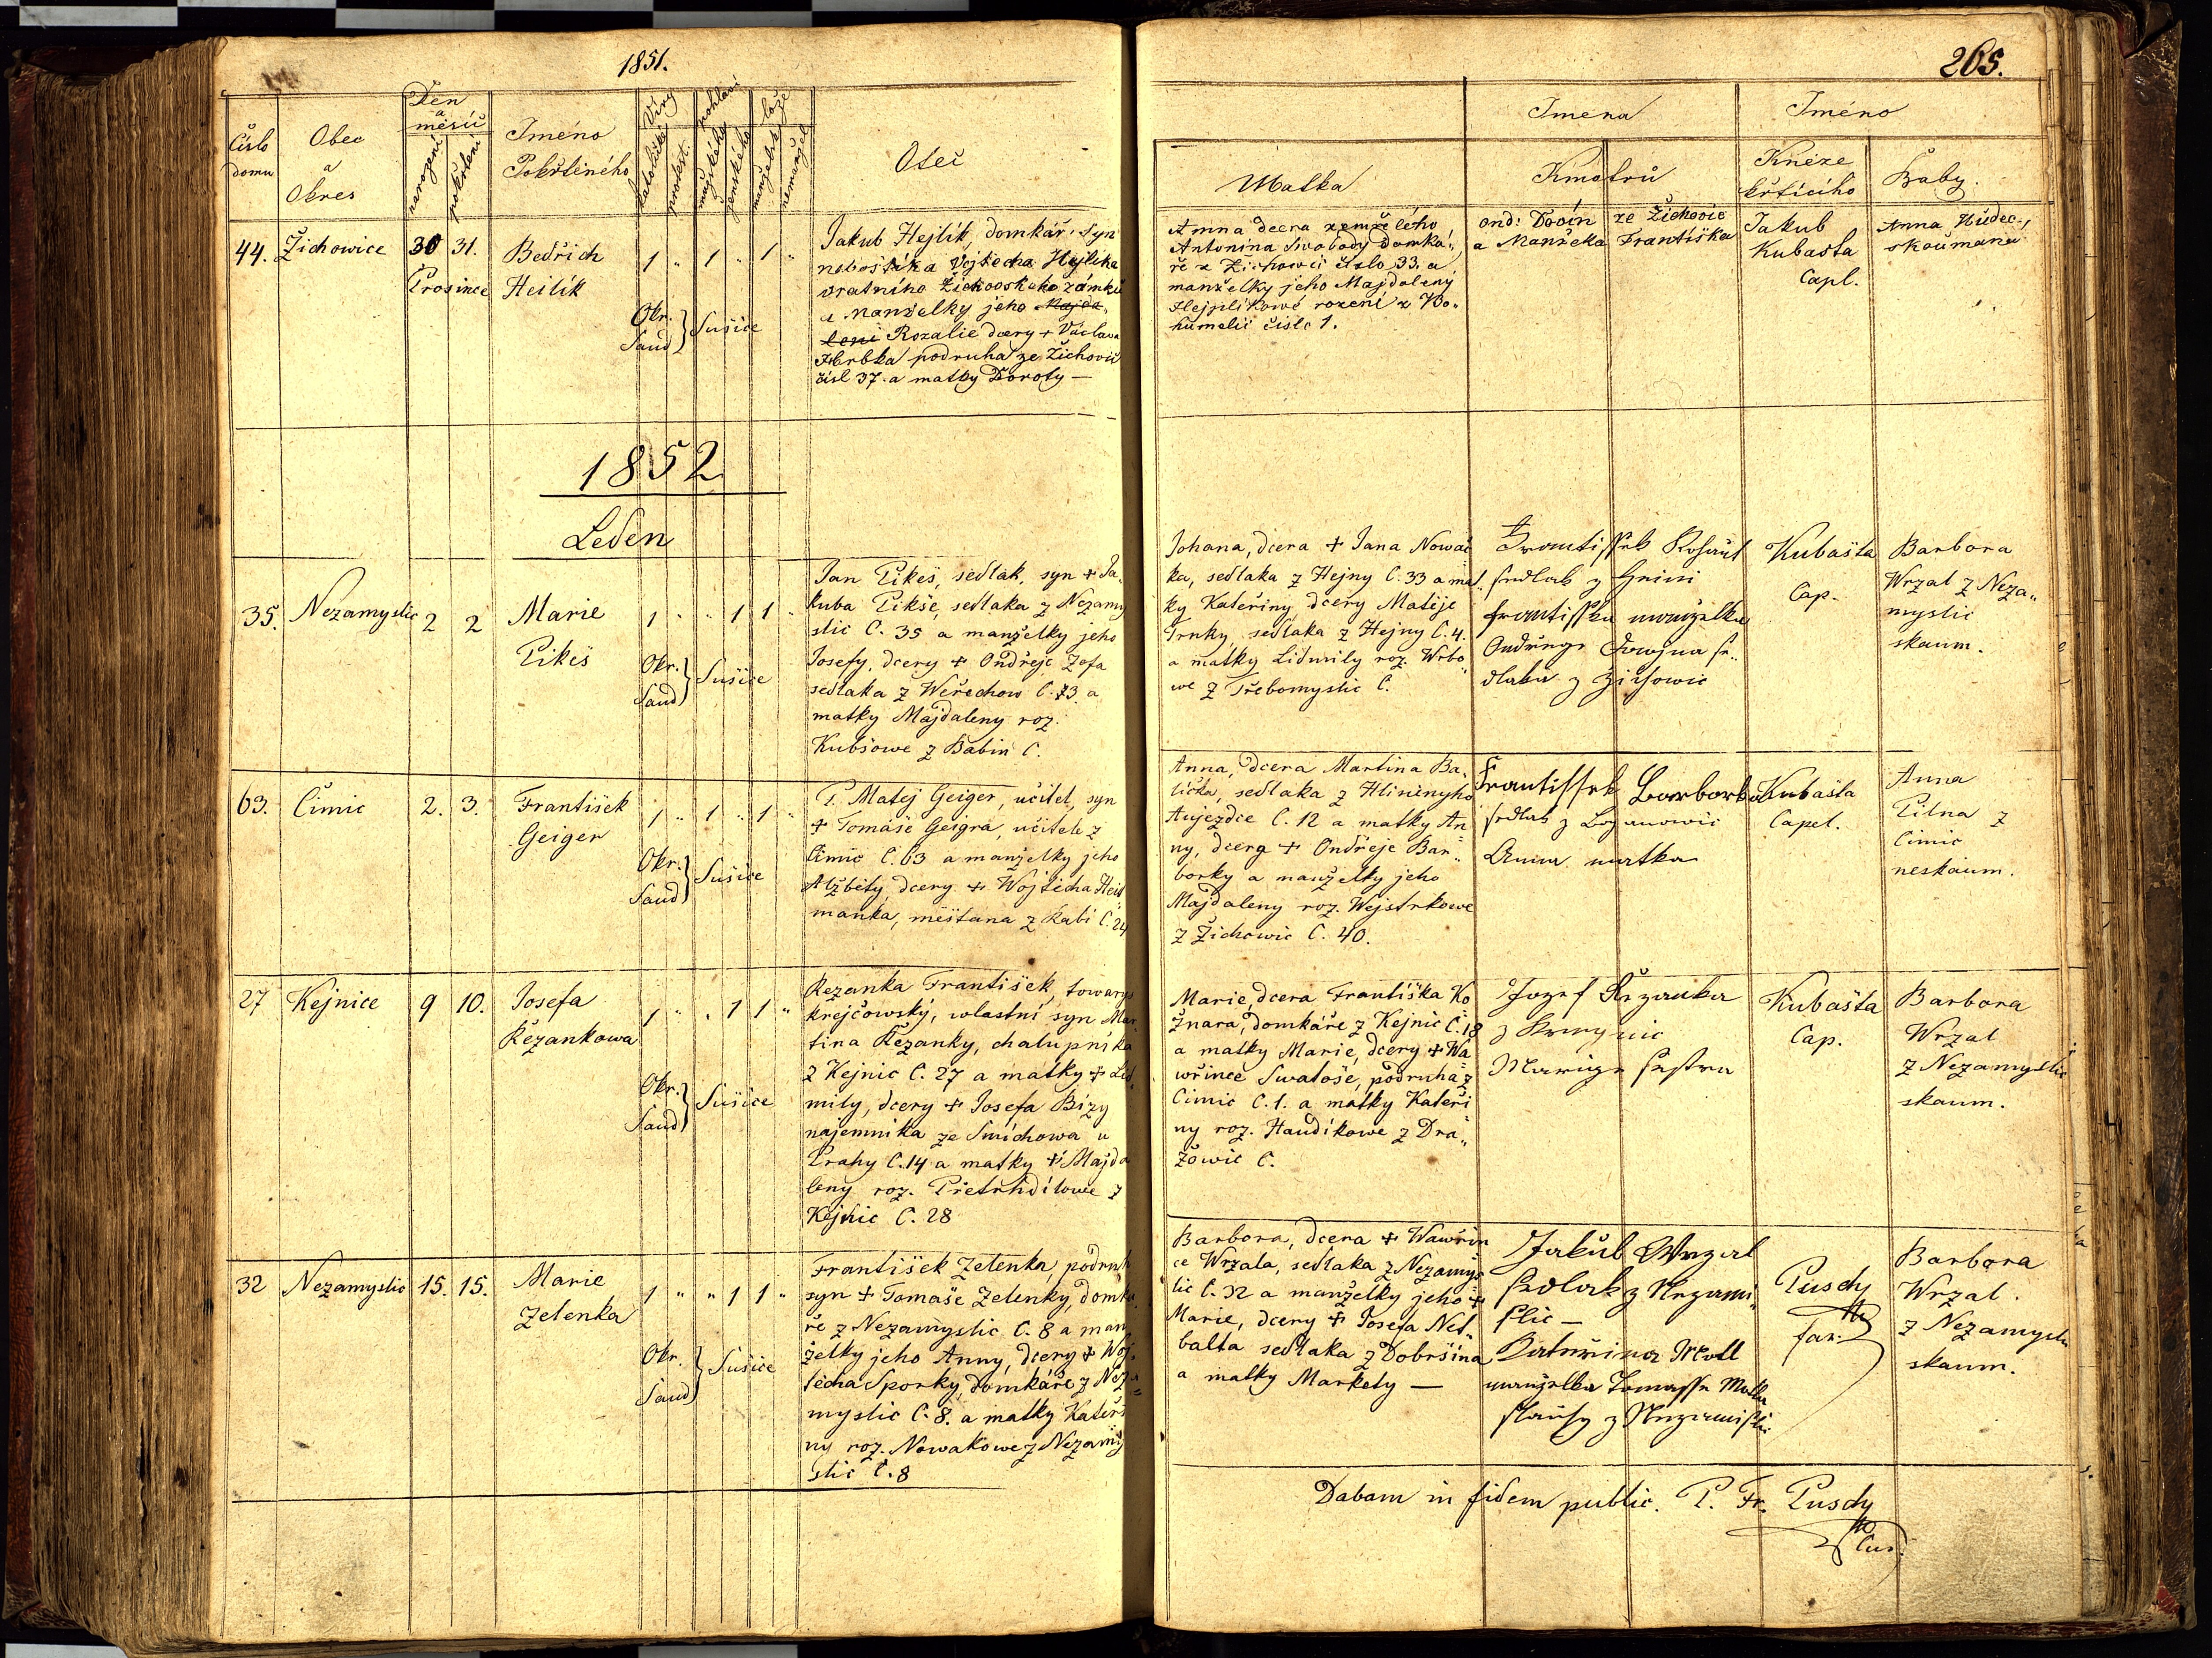 1851.
265.
Číslo domu
Obec a Okres
Den a měsíc
narození
pokřtění
Jméno Pokřtěného
Víry
katolické
protest.
pohlaví
mužského
ženského
lože
manželské
nemanžel.
Otec
Matka
Jmena
Kmotrů
Jméno
Kněze křtícího
Baby.
44. Žichowice 30 31. Bedřich Heilík
Prosince
1 " 1 " 1 "
Okr. Saud } Sušice
Jakub Hejlík, domkář, syn
nebožtíka Vojtěcha Hejlíka
vratního Žichovského zámku
a Manželky jeho Majda„
leni Rozalie dcery + Václava
Hrbka podruha ze Žichovic
čísl 37. a matky Doroty —
Anna dcera zemřelého
Antonína Swobody domká„
ře z Žichowic číslo 33. a
manželky jeho Majdaleny
rození z Bo„
humelic číslo 1.
ond: ze Žichovic
a Manželka Františka
Jakub
Kubašta
Capl.
Anna Hudec„
skoumana
1852
Leden
35. Nezamyslic 2 2 Marie
Pikeš
1 " " 1 1 "
Okr. Saud } Sušice
Jan Pikeš, sedlák, syn + Ja„
kuba Pikše, sedlaka z Nezamy
slic Č. 35 a manželky jeho
Josefy, dcery + Ondřeje Zofa
sedlaka z Weřechow Č. 73. a
matky Majdaleny roz.
Kubšowe z Babin Č.
Johana, dcera + Jana Nowač
ka, sedlaka z Hejny Č. 33 a mat„
ky Kateřiny dcery Matěje
Trnky, sedlaka z Hejny Č. 4.
a matky Lidmily roz. Wrbo„
we z Třebomyslic Č.
Frantissek
sedlak z
frantisska manželka
Ondřege se„
dlaka z Žichowic
Kubašta
Cap.
Barbora
Wrzal z Neza„
myslic
skaum.
63. Čimic 2. 3. František
Geiger
1 " 1 " 1 "
Okr. Saud } Sušice
P. Matej Geiger, učitel, syn
+ Tomáše Geigra, učitele z
Čimic Č. 63 a manželky jeho
Alžběty, dcery + Wojtěcha Heis
manka, měštana z Rabí Č. 24
Anna, dcera Martina Ba„
lička, sedlaka z Hliněnyho
Aujezdce Č. 12 a matky An
ny, dcery + Ondřeje Bar„
borky a manželky jeho
Majdaleny roz. Wejstrkowe
z Žichowic Č. 40.
Frantissek Barborka
sedlak z Bozanowic
Anna matka
Kubašta
Capel.
Anna
Pilna z
Čimic
neskaum.
27 Kejnice 9 10. Josefa
Řezankowa
1 " " 1 1 "
Okr. Saud } Sušice
Řezanka František, towarys
krejčowský, wlastní syn Mar
tina Řezanky, chalupnika
z Kejnic Č. 27 a matky + Lid„
mily, dcery + Josefa Bízy
najemnika ze Smichowa u
Prahy Č. 14 a matky + Majda
leny roz. Přetrhdílowe z
Kejnic Č. 28
Marie, dcera Františka Ko
žnara, domkáře z Kejnic Č. 18
a matky Marie, dcery + Wa
wřince Swatoše, podruha z
Čimic Č. 1. a matky Kateři
ny roz. Haudikowe z Dra„
žowic Č.
Jozef Ržezanka
z
Marige sestra
Kubašta
Cap.
Barbora
Wrzal
z Nezamyslic
skaum.
32 Nezamyslic 15. 15. Marie
Zelenka
1 " " 1 1 "
Okr. Saud } Sušice
František Zelenka, podruh
syn + Tomaše Zelenky, domka
ře z Nezamyslic Č. 8 a man
želky jeho Anny, dcery + Woj„
těcha Sporky, domkáře z Neza
myslic Č. 8. a matky Kateři
ny roz. Nowakowe z Nezamy
slic Č. 8
Barbora, dcera + Wawřin
ce Wrzala, sedlaka z Nezamys
lic Č. 32 a manželky jeho +
Marie, dcery + Josefa Net„
balta sedlaka z Dobršína
a matky Markety —
Jakub Wrzal
sedlak z Nezami„
slic —
Katerina
manzelka Tomasse
z Nezamislic
Pusdy
far.
Barbora
Wrzal.
z Nezamyslic
skaum.
Dabam in fidem public. P. Fr. Pusdy
Cur.